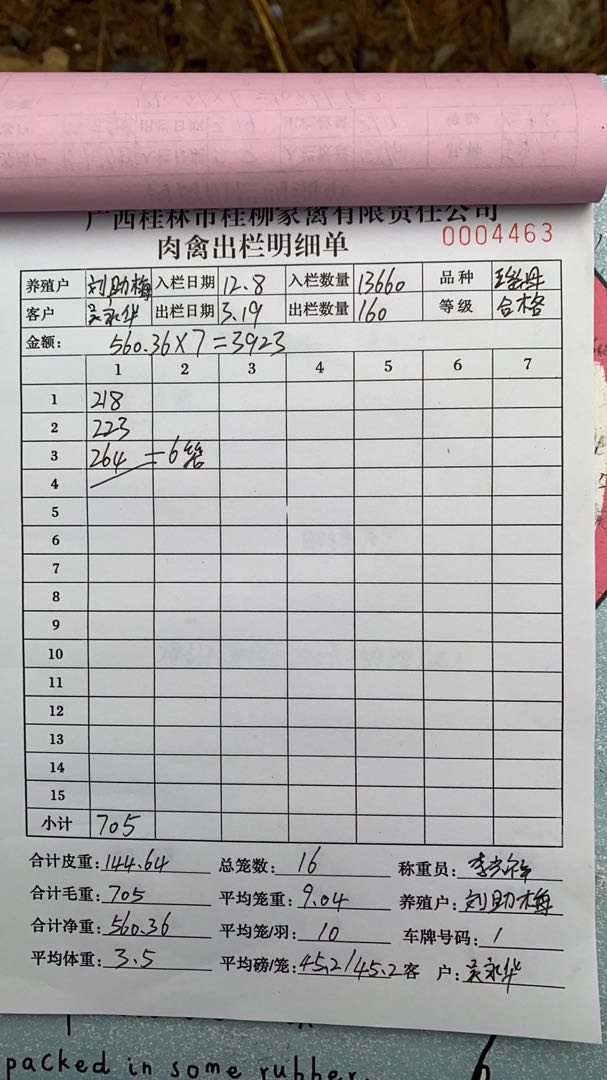 广西桂林市桂柳家禽有限责任公司
肉禽出栏明细单 0004463
养殖户 刘助梅 入栏日期 12.8 入栏数量 13660 品种
客户 吴永华 出栏日期 3.19 出栏数量 160 等级 合格
金额: 560.36×7=3923
1 2 3 4 5 6 7
1 218
2 223
3 264 =6笼
4
5
6
7
8
9
10
11
12
13
14
15
小计 705
合计皮重: 144.64 总笼数: 16 称重员:
合计毛重: 705 平均笼重: 9.04 养殖户: 刘助梅
合计净重: 560.36 平均笼/羽: 10 车牌号码: /
平均体重: 3.5 平均磅/笼: 45.2/45.2 客 户: 吴永华
packed in some rubber.